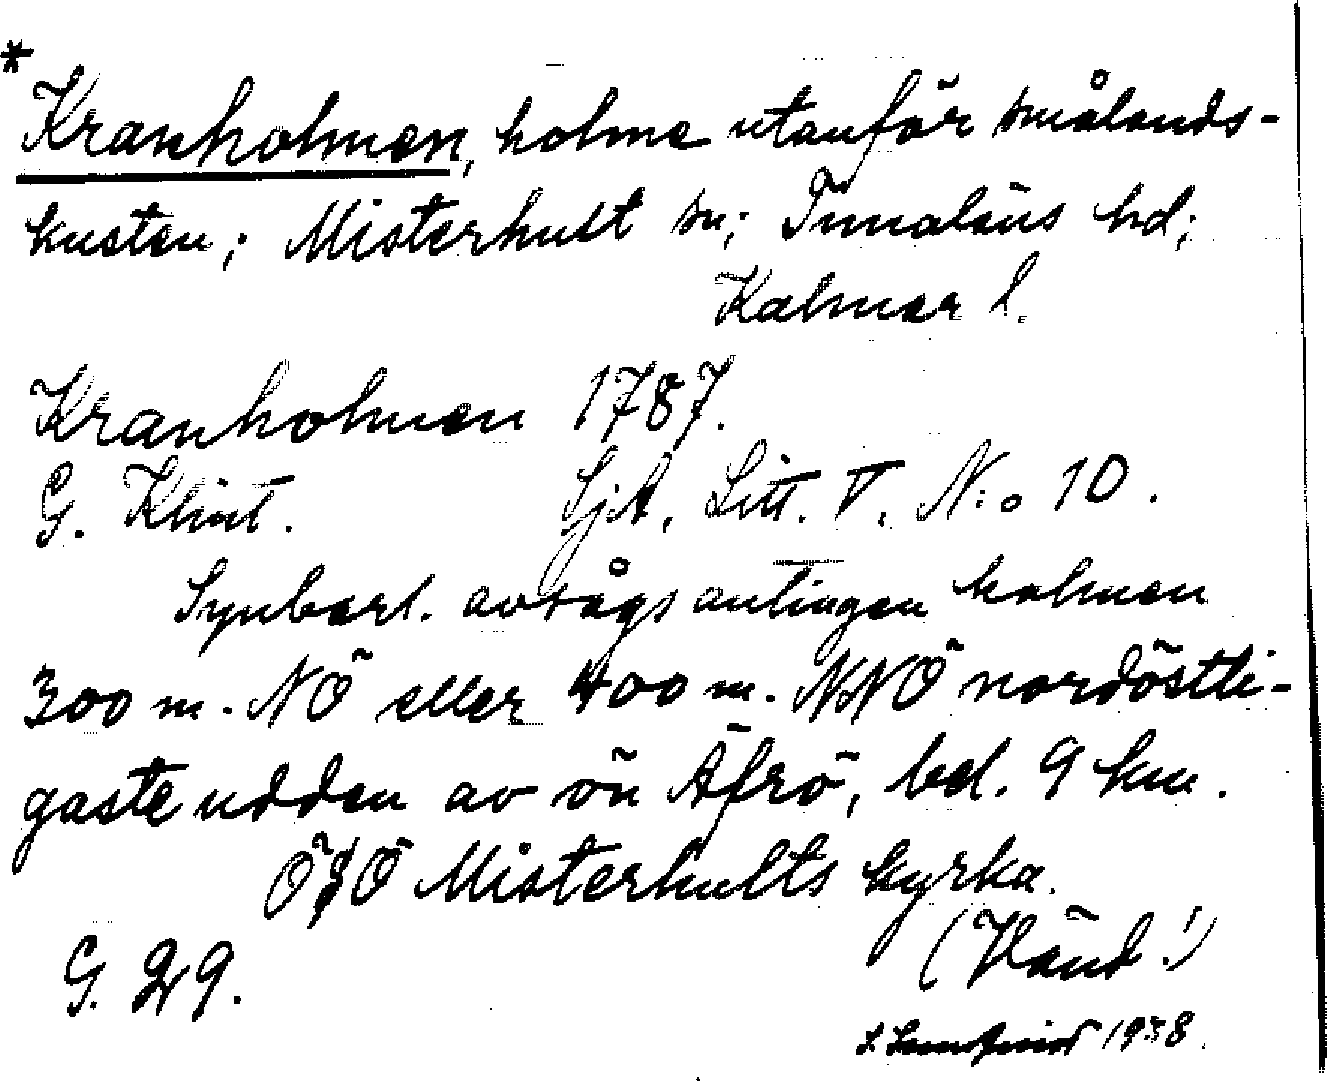 *
Kranholmen, holme utanför smålands-
kusten; Misterhult sn; Tunaläns hd;
Kalmar l.
Kranholmen 1787.
G. Klint. SjA, Litt. V. N:o 10.
Synbarl. avsågs antingen holmen
300 m. NÖ eller 400 m. NNÖ nordöstli-
gaste udden av ön Äfrö, bel. 9 km.
ÖSÖ Misterhults kyrka.
(Vänd!)
G. 29.
1938.